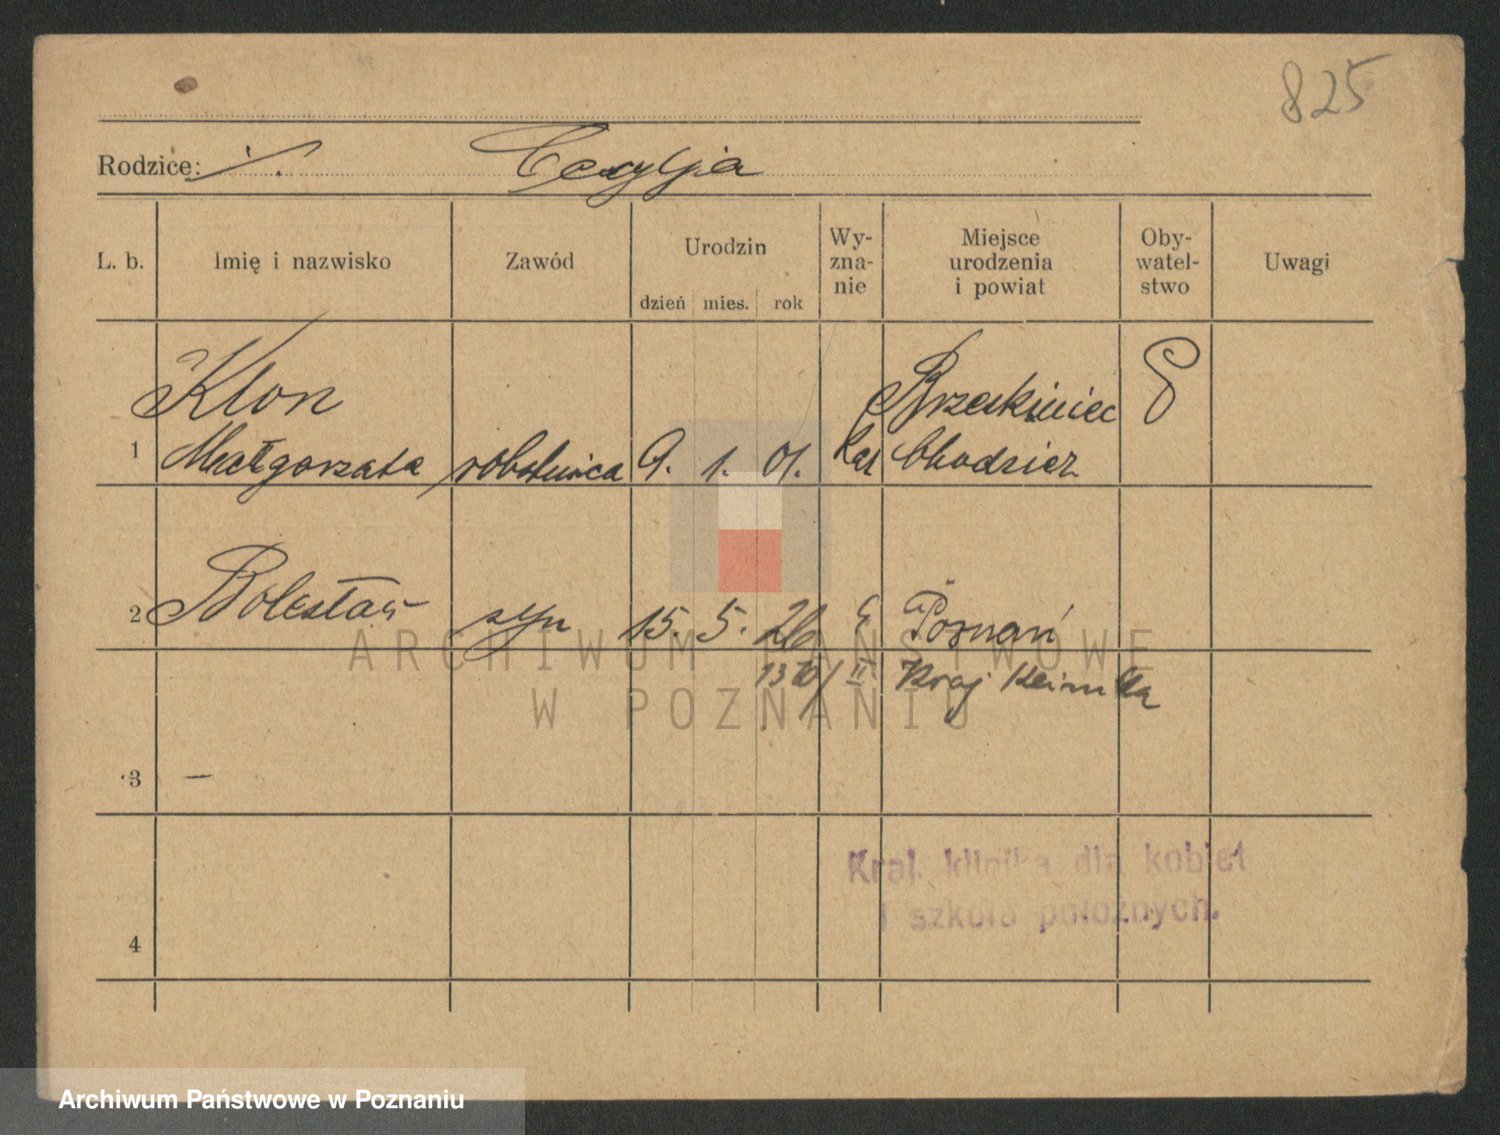 825
Rodzice: ./. Cecylja
L. b.
Imię i nazwisko
Zawód
Urodzin
dzień mies. rok
Wy-
zna-
nie
Miejsce
urodzenia
i powiat
Oby-
watel-
stwo
Uwagi
Klon
1 Małgorzata robotnica 9. 1. 01. kat
Brzekiniec
Chodzież
P
2 Bolesław syn 15. 5. 26 Poznań
1310/II Kraj Klinika
3 —
4
Kraj. klinika dla kobiet
i szkoła położnych.
ARCHIWUM PAŃSTWOWE
W POZNANIU
Archiwum Państwowe w Poznaniu